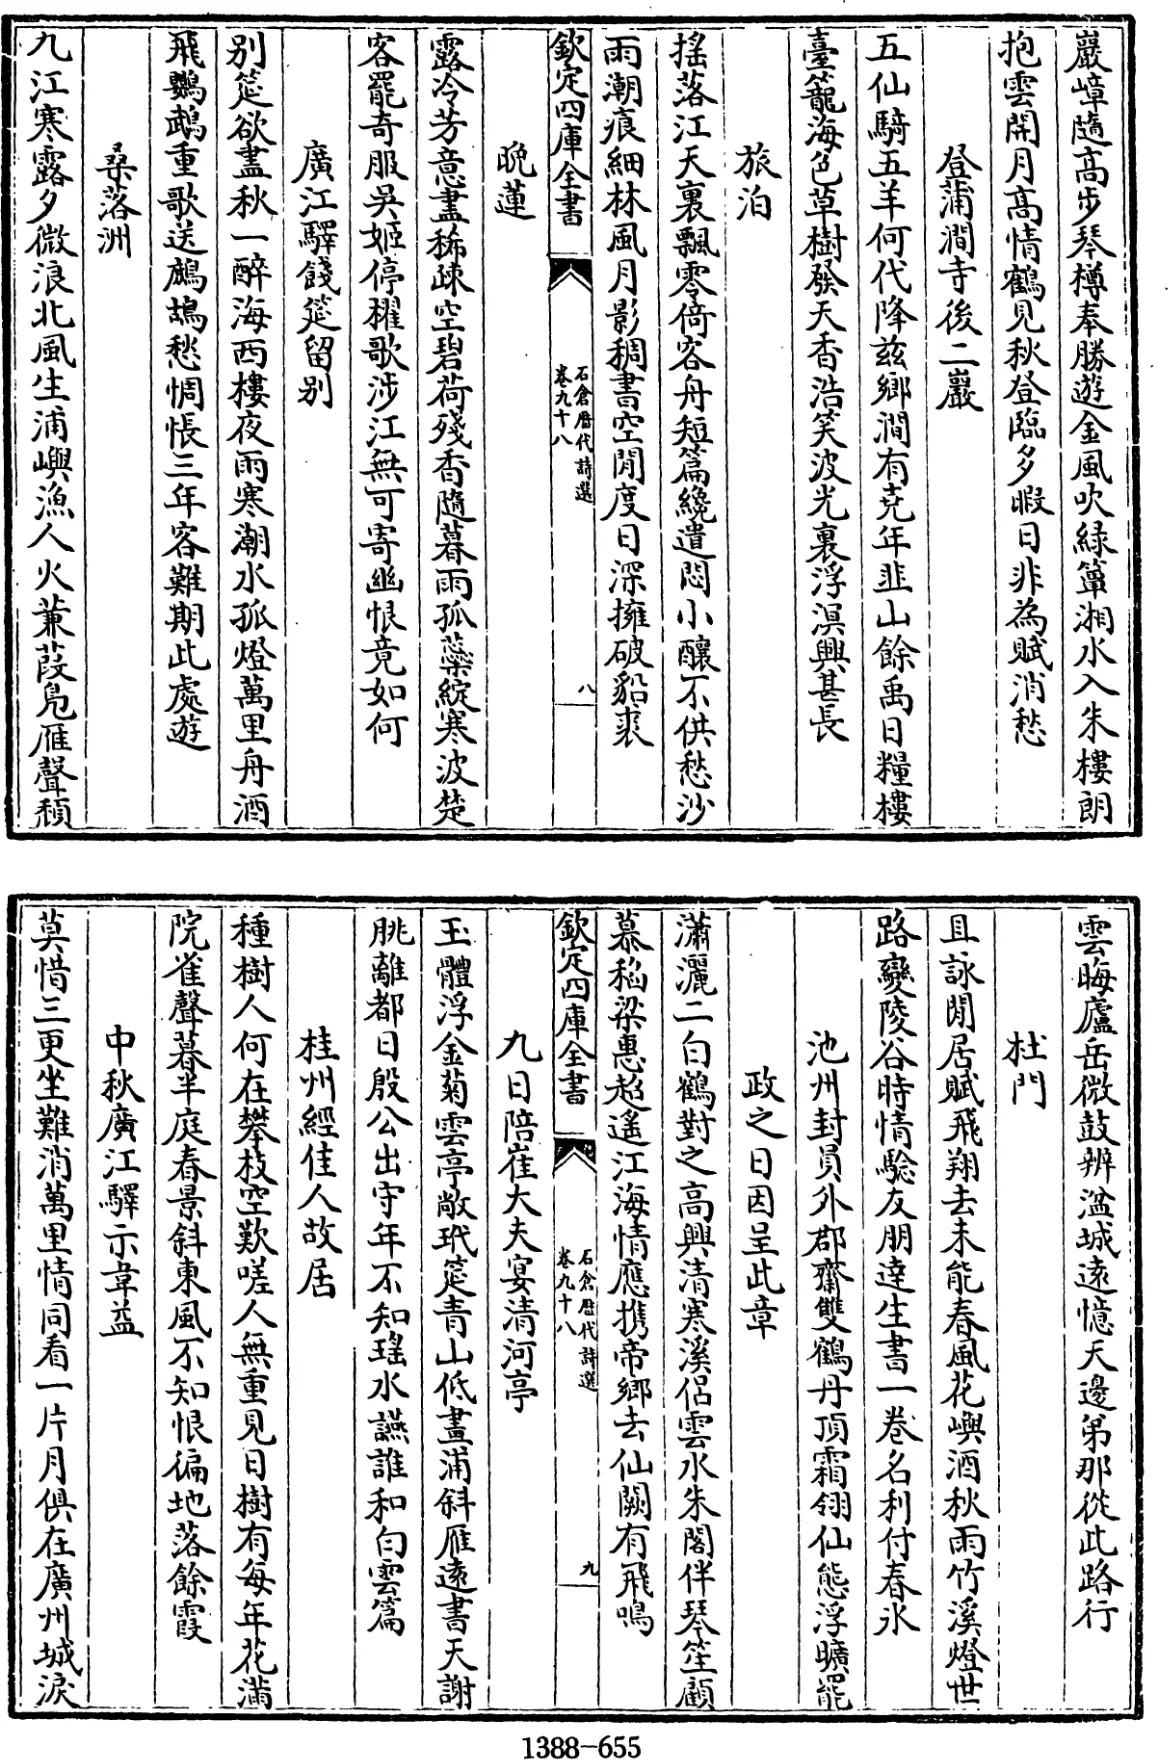 巖嶂隨髙步琴樽奉勝遊金風吹緑簟湘水入朱樓朗
抱雲開月髙情鶴見秋登臨多暇日非為賦消愁
登蒲澗寺後二巖
五仙騎五羊何代降兹鄉澗有尭年韭山餘禹日糧樓
臺籠海色草樹發天香浩笑波光裏浮溟興甚長
旅泊
揺落江天裏飄零倚客舟短篇纔遣悶小釀不供愁沙
雨潮痕細林風月影稠書空閒度日深擁破貂裘
欽定四庫全書
石倉歴代詩選
卷九十八
八
晩蓮
露冷芳意盡稀疎空碧荷殘香隨暮雨孤蘂綻寒波楚
客罷奇服吳姬停櫂歌涉江無可寄幽恨竟如何
廣江驛餞筵留别
别筵欲盡秋一醉海西樓夜雨寒潮水孤燈萬里舟酒
飛鸚鵡重歌送鷓鴣愁惆悵三年客難期此處遊
桑落洲
九江寒露夕微浪北風生浦嶼漁人火蒹葭鳬雁聲頽
雲晦廬岳微鼓辨湓城逺憶天邊弟那從此路行
杜門
且詠閒居賦飛翔去未能春風花嶼酒秋雨竹溪燈世
路變陵谷時情驗友朋達生書一巻名利付春氷
池州封員外郡齋雙鶴丹頂霜翎仙態浮曠罷
政之日因呈此章
瀟灑二白鶴對之高興清寒溪侣雲水朱閣伴琴笙顧
慕稻梁惠超遙江海情應携帝鄉去仙闕有飛鳴
欽定四庫全書
石倉歴代詩選
卷九十八
九
九日陪崔大夫宴清河亭
玉體浮金菊雲亭敞玳筵青山低畫浦斜雁逺書天謝
朓離都日殷公出守年不知瑶水讌誰和白雲篇
桂州經佳人故居
種樹人何在攀枝空歎嗟人無重見日樹有每年花滿
院雀聲暮半庭春景斜東風不知恨徧地落餘霞
中秋廣江驛示韋益
莫惜三更坐難消萬里情同看一片月俱在廣州城淚
1388-655